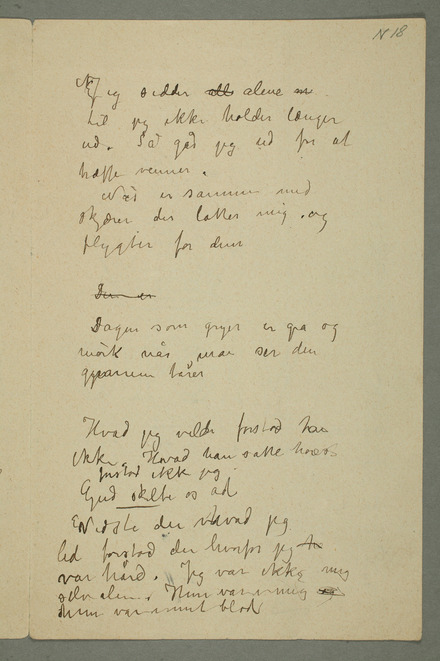 N 18
jeg sidder alene
til jeg ikke holder længer
ud. Så går jeg ud for at
træffe venner.
Når er sammen med
skjærer der latter mig. og
flygter for dem
Den er
Dagen som gryer er gra og
mörk når man ser den
gjennem tårer
Hvad jeg vilde forstod han
ikke Hvad han satte
forstod ikke jeg
Gud skilte os ad
Vidste du hvad jeg
led forstod du hvorfor jeg
var hård. Jeg var ikke mig
selv alene. Hun var i mig
Hun var i mit blod